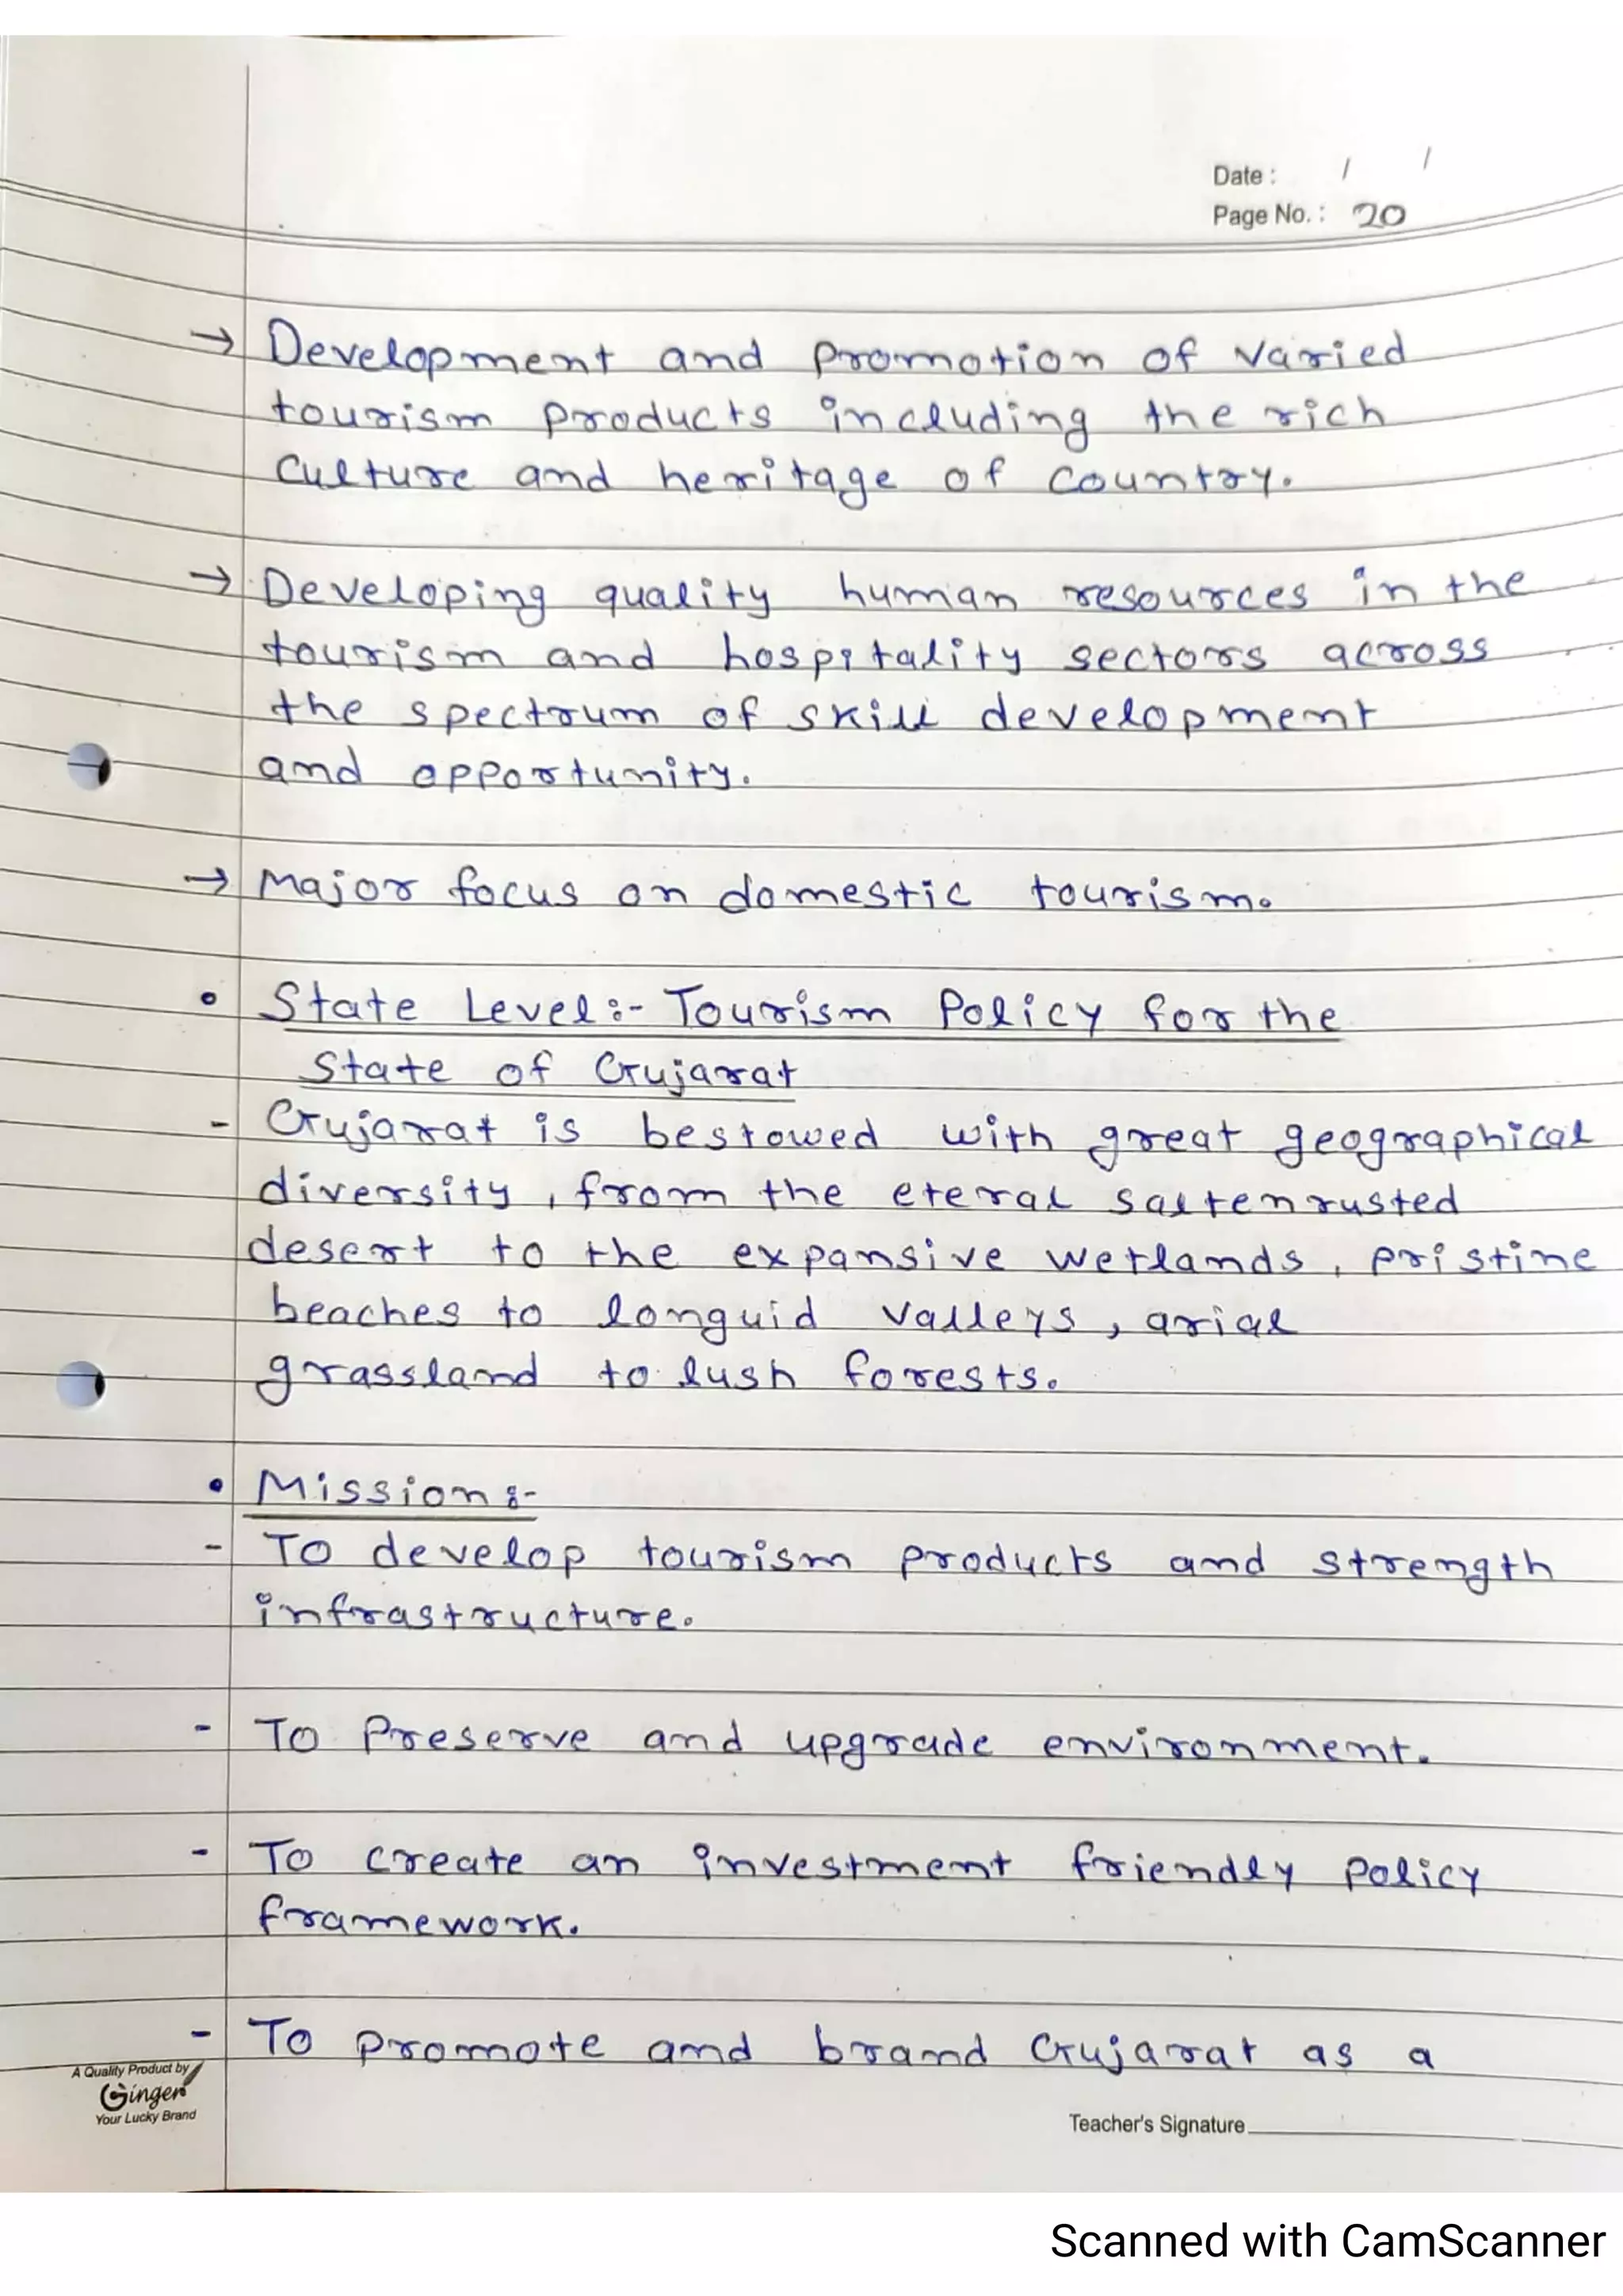 Date : / /
Page No. : 20
→ Development and promotion of varied
tourism products including the rich
culture and heritage of country.
→ Developing quality human resources in the
tourism and hospitality sectors across
the spectrum of skill development
and opportunity.
→ Major focus on domestic tourism.
• State Level :- Tourism Policy for the
State of Gujarat
- Gujarat is bestowed with great geographical
diversity, from the eteral saltenrusted
desert to the expansive wetlands, pristine
beaches to longuid valleys, arial
grassland to lush forests.
• Mission :-
- To develop tourism products and strength
infrastructure.
- To preserve and upgrade environment.
- To create an investment friendly policy
framework.
- To promote and brand Gujarat as a
A Quality Product by
Ginger
Your Lucky Brand
Teacher's Signature
Scanned with CamScanner